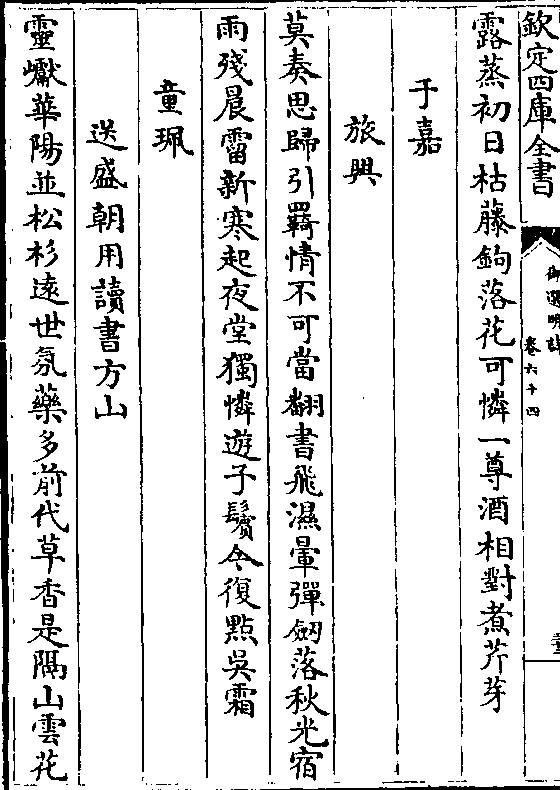 欽定四庫全書
御選明詩
卷六十四
露蒸初日枯藤鉤落花可憐一尊酒相對煮芹芽
于嘉
旅興
莫奏思歸引羇情不可當翻書飛濕暈彈劒落秋光宿
雨殘晨霤新寒起夜堂獨憐遊子鬢今復點吳霜
童珮
送盛朝用讀書方山
靈巘華陽並松杉遠世氛藥多前代草香是隔山雲花